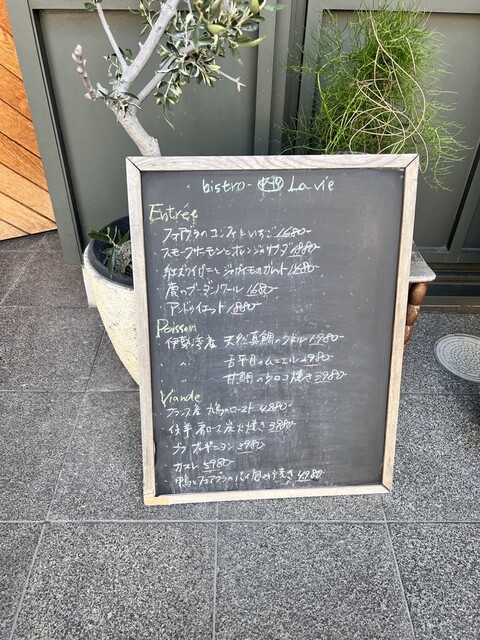 bistro- La vie
Entrée
フォアグラのコンフィといちご 1680-
スモークサーモンとオレンジのサラダ 1880-
紅ズワイガニとジャガイモのガレット 1680-
鹿のブーダンノワール 1680-
アンドゥイエット 1880-
Poisson
伊勢湾産 天然真鯛のポワレ 1,980-
〃 舌平目のムニエル 2980-
〃 甘鯛のウロコ焼き 3980-
Viande
フランス産 鳩のロースト 4,880-
仔羊肩ロース炭火焼き 3980-
ブフ ブルギニヨン 3980-
カスレ 3980-
鴨とフォアグラのパイ包み焼き 4980-